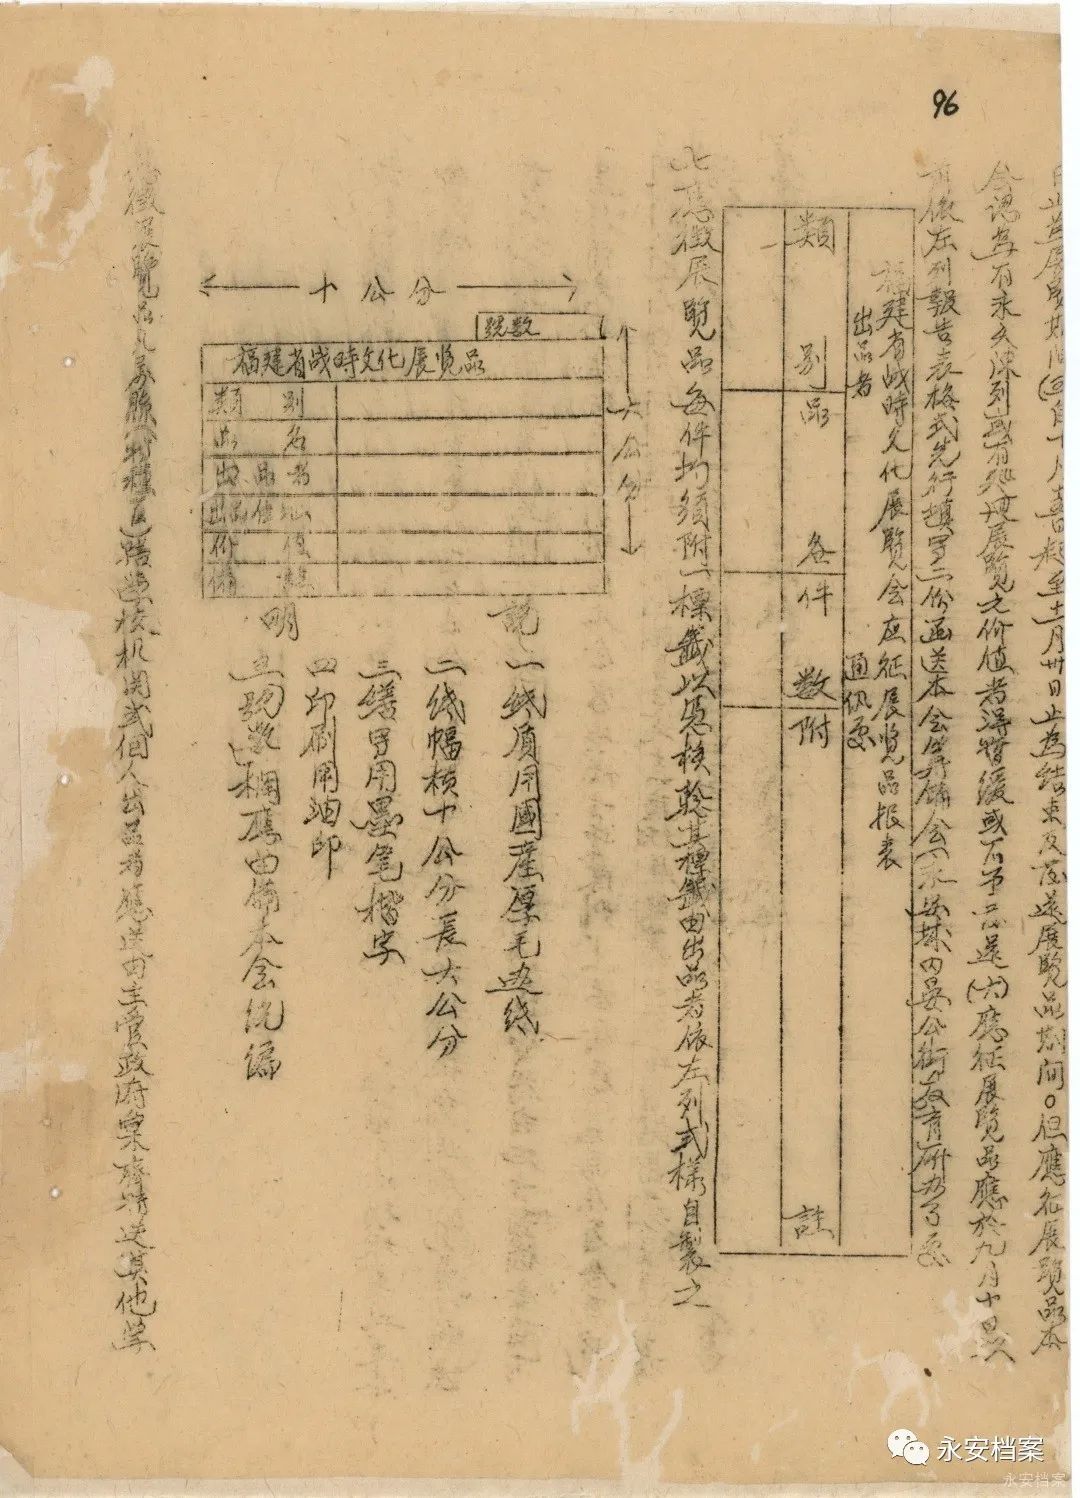 96
日止為展覽期間(五)自十月
起至十一月卅日止為結束及發還展覽品期间。但應征展覽品本
会認為有永久陳列或有他埠展覽之价值者得暫緩或不予发还(六)應征展覽品應於九月十日以
前依左列報告表格式先行填寫二份函送本会筹備会(永安城内晏公街教育所办了处
福建省战時文化展览会应征展览品报表
出品者
通讯处
類別
品名
件数
附註
七應徵展覽品每件均須附一標籤以憑核驗其標籤由出品者依左列式样自製之
十公分
六公分
號数
福建省战時文化展览品
類別
品名
出品者
出品地
价值
備註
說明
一纸质用國産厚毛边纸
二纸幅横十公分長六公分
三繕寫用墨笔楷字
四印刷用油印
五號數欄應由備本会统编
徵展覽品凡系縣(市種区)踏学校机関或個人出品者應送由主管政府彙齊转送其他学
永安档案
永安档案